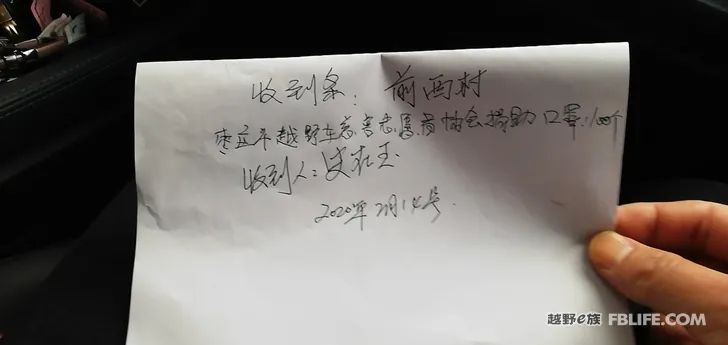 收到条：前西村
枣庄市越野车慈善志愿者协会捐助口罩100个
收到人：史在玉
2020年2月14号.
越野e族 FBLIFE.COM